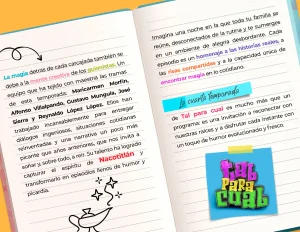 La magia detrás de cada carcajada también se
debe a la mente creativa de los guionistas. Un
equipo que ha tejido con maestría las tramas
de esta temporada: Maricarmen Morfín,
Alfonso Villalpando, Gustavo Munguía, José
Sierra y Reynaldo López López. Ellos han
trabajado incansablemente para entregar
diálogos ingeniosos, situaciones cotidianas
reinventadas y una narrativa un poco más
picante que años anteriores, que nos invita a
soñar y, sobre todo, a reír. Su talento ha logrado
capturar el espíritu de Nacotitlán y
transformarlo en episodios llenos de humor y
picardía.
Imagina una noche en la que toda tu familia se
reúne, desconectados de la rutina y se sumergen
en un ambiente de alegría desbordante. Cada
episodio es un homenaje a las historias reales, a
las risas compartidas y a la capacidad única de
encontrar magia en lo cotidiano.
La cuarta temporada
de Tal para cual es mucho más que un
programa: es una invitación a reconectar con
nuestras raíces y a disfrutar cada instante con
un toque de humor evolucionado y fresco.
TAL
PARA
CUAL